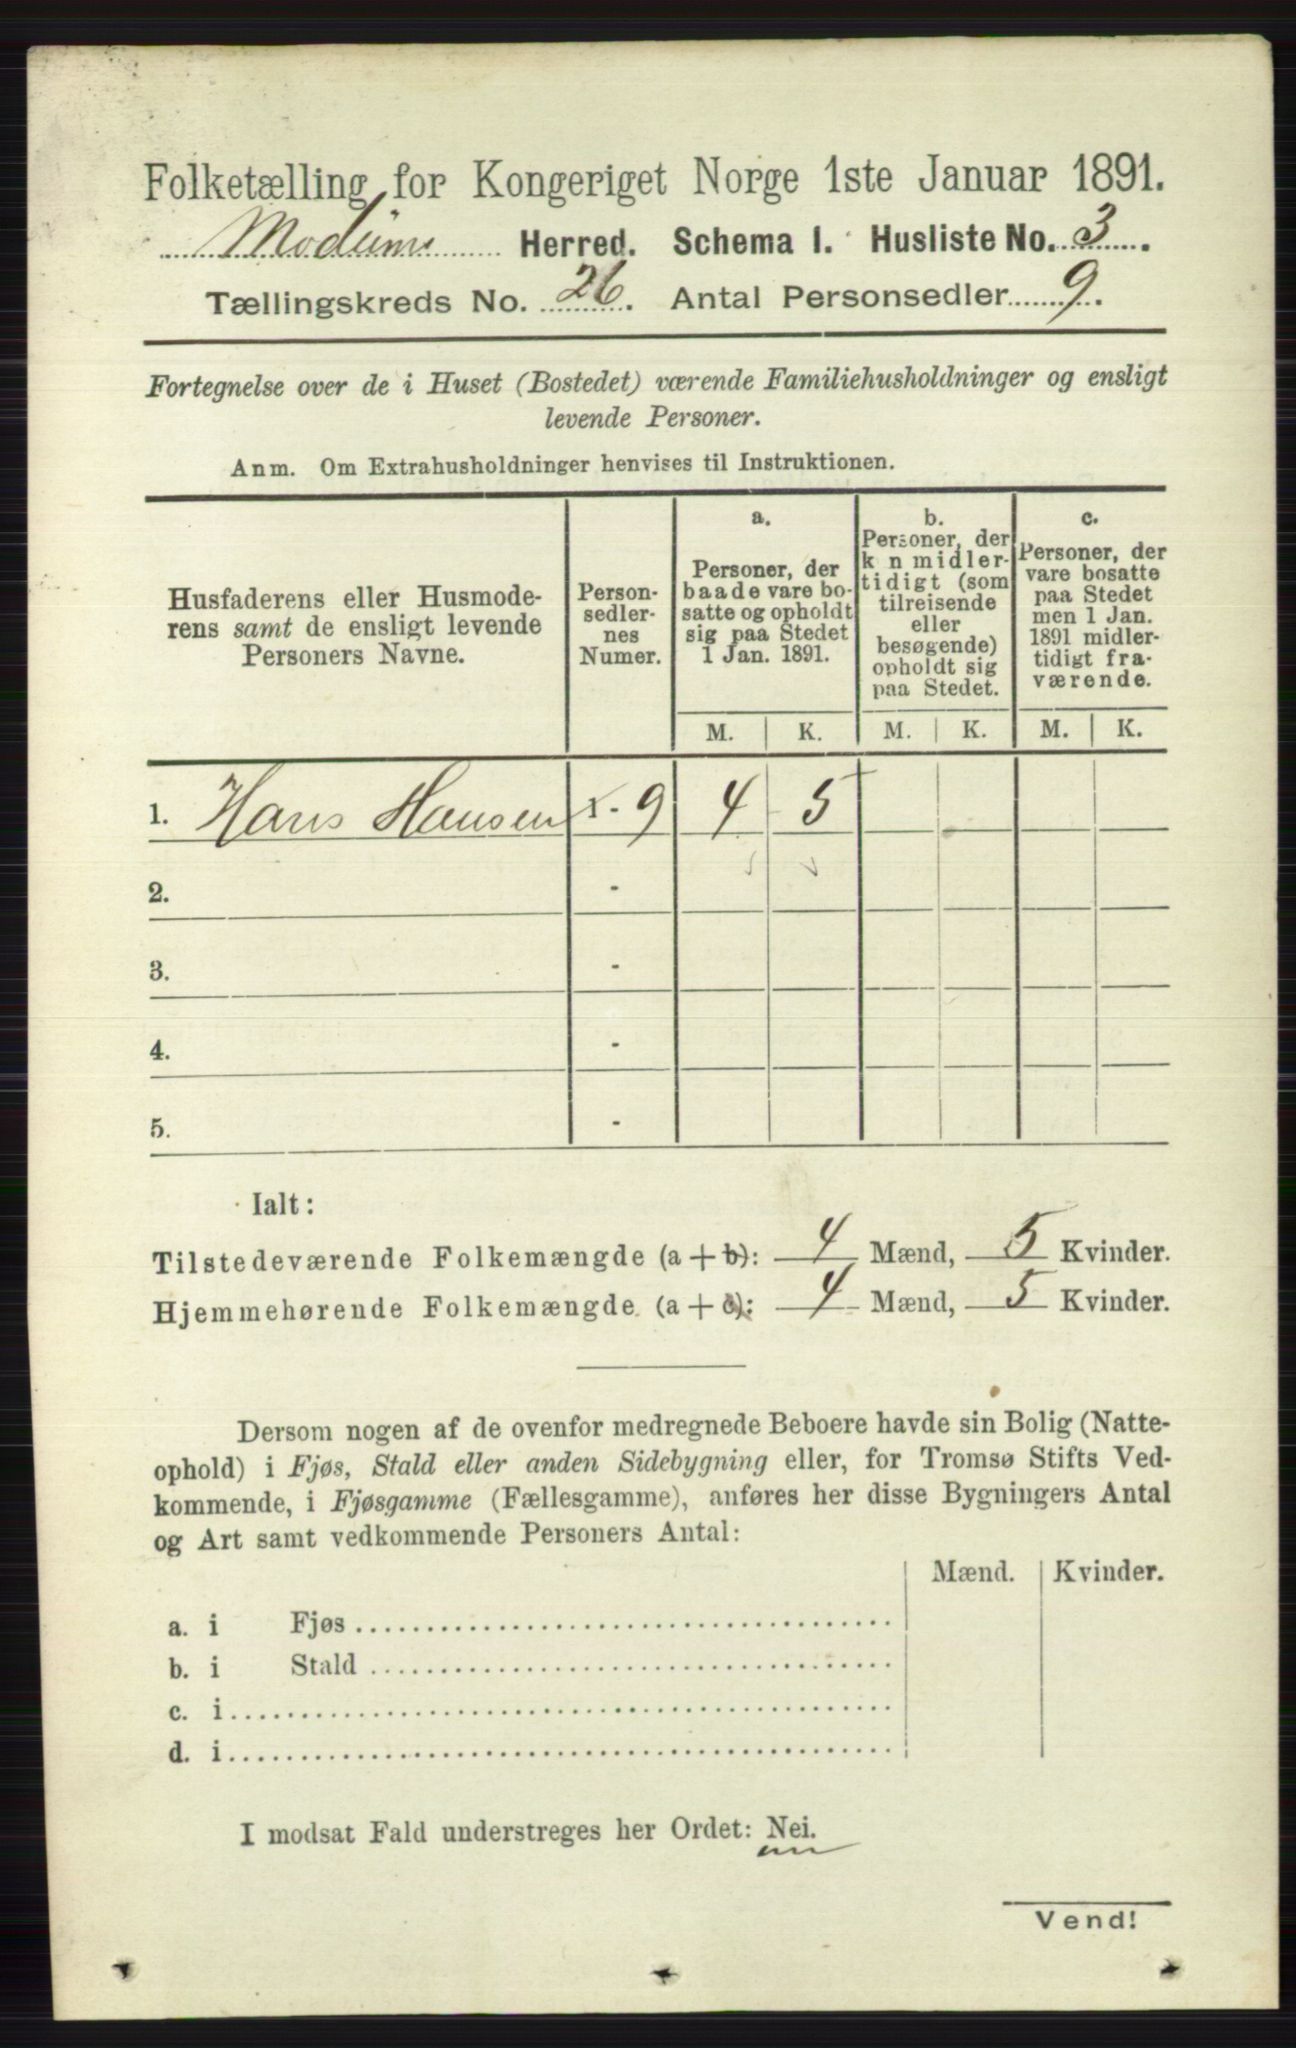 Folketælling for Kongeriget Norge 1ste Januar 1891.
Modum Herred. Schema I. Husliste No. 3.
Tællingskreds No. 26. Antal Personsedler 9.
Fortegnelse over de i Huset (Bostedet) værende Familiehusholdninger og ensligt
levende Personer.
Anm. Om Extrahusholdninger henvises til Instruktionen.
Husfaderens eller Husmode-
rens samt de ensligt levende
Personers Navne.
Person-
sedler-
nes
Numer.
a.
Personer, der
baade vare bo-
satte og opholdt
sig paa Stedet
1 Jan. 1891.
b.
Personer, der
k n midler-
tidigt (som
tilreisende
eller
besøgende)
opholdt sig
paa Stedet.
c.
Personer, der
vare bosatte
paa Stedet
men 1 Jan.
1891 midler-
tidigt fra-
værende.
M. K. M. K. M. K.
1. Hans Hansen 1-9 4 5
2. -
3. -
4. -
5. -
Ialt:
Tilstedeværende Folkemængde (a + b): 4 Mænd, 5 Kvinder.
Hjemmehørende Folkemængde (a + c): 4 Mænd, 5 Kvinder.
Dersom nogen af de ovenfor medregnede Beboere havde sin Bolig (Natte-
ophold) i Fjøs, Stald eller anden Sidebygning eller, for Tromsø Stifts Ved-
kommende, i Fjøsgamme (Fællesgamme), anføres her disse Bygningers Antal
og Art samt vedkommende Personers Antal:
Mænd. Kvinder.
a. i Fjøs
b. i Stald
c. i
d. i
I modsat Fald understreges her Ordet: Nei.
Vend!